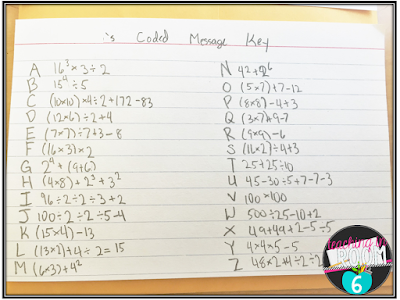 's Coded Message Key
A 16³×3÷2
B 15⁴÷5
C (10×10)×4÷2+172-83
D (12×6)÷2+4
E (7×7)÷7+3-8
F (16×3)×2
G 2⁴+(9+6)
H (4×8)+2³+3²
I 96÷2÷2÷3+2
J 100÷2÷2÷5-4
K (15×4)-13
L (13×2)+4÷2=15
M (6×3)+4²
N 4²+2⁶
O (5×7)+7-12
P (8×8)-4+3
Q (3×7)+9-7
R (9×9)-6
S (16×2)÷4+3
T 25+25÷10
U 45-30÷5+7-7-3
V 100×100
W 500÷25-10+2
X 49+49+2-5÷5
Y 4×4×5-5
Z 48×2+4÷2÷2
teaching in
ROOM
6